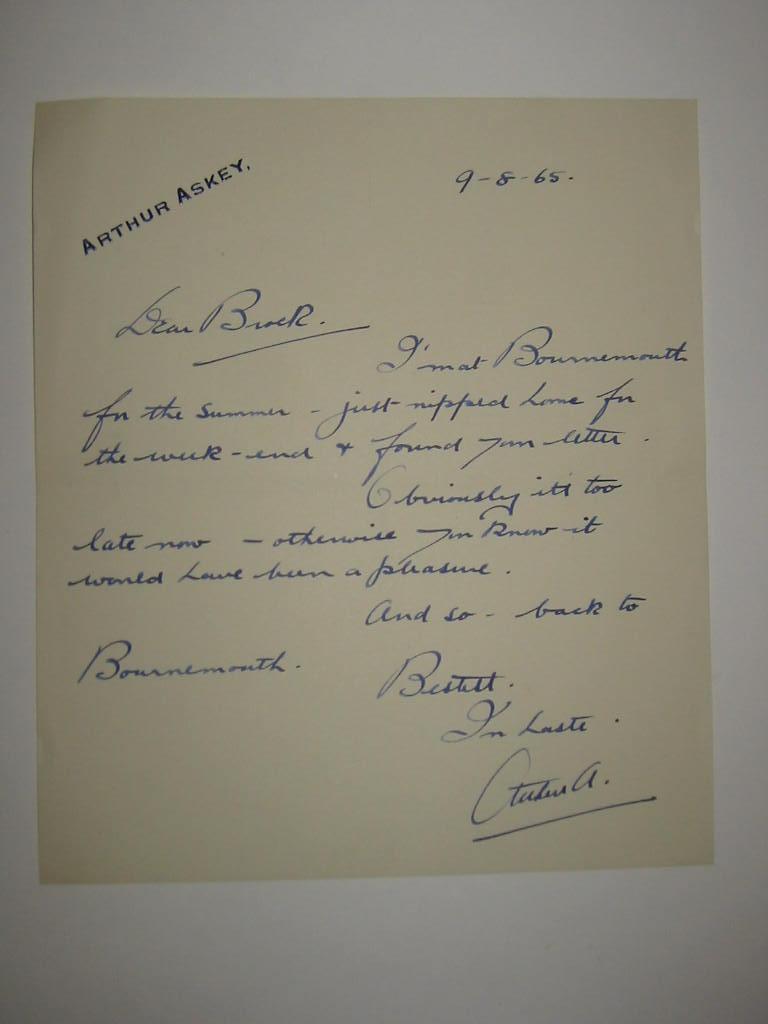 ARTHUR ASKEY.
9-8-65.
Dear Brock.
I'm at Bournemouth
for the summer - just nipped home for
the week-end & found your letter.
Obviously it's too
late now - otherwise you know it
would have been a pleasure.
And so - back to
Bournemouth.
Bestest.
In haste.
Arthur A.